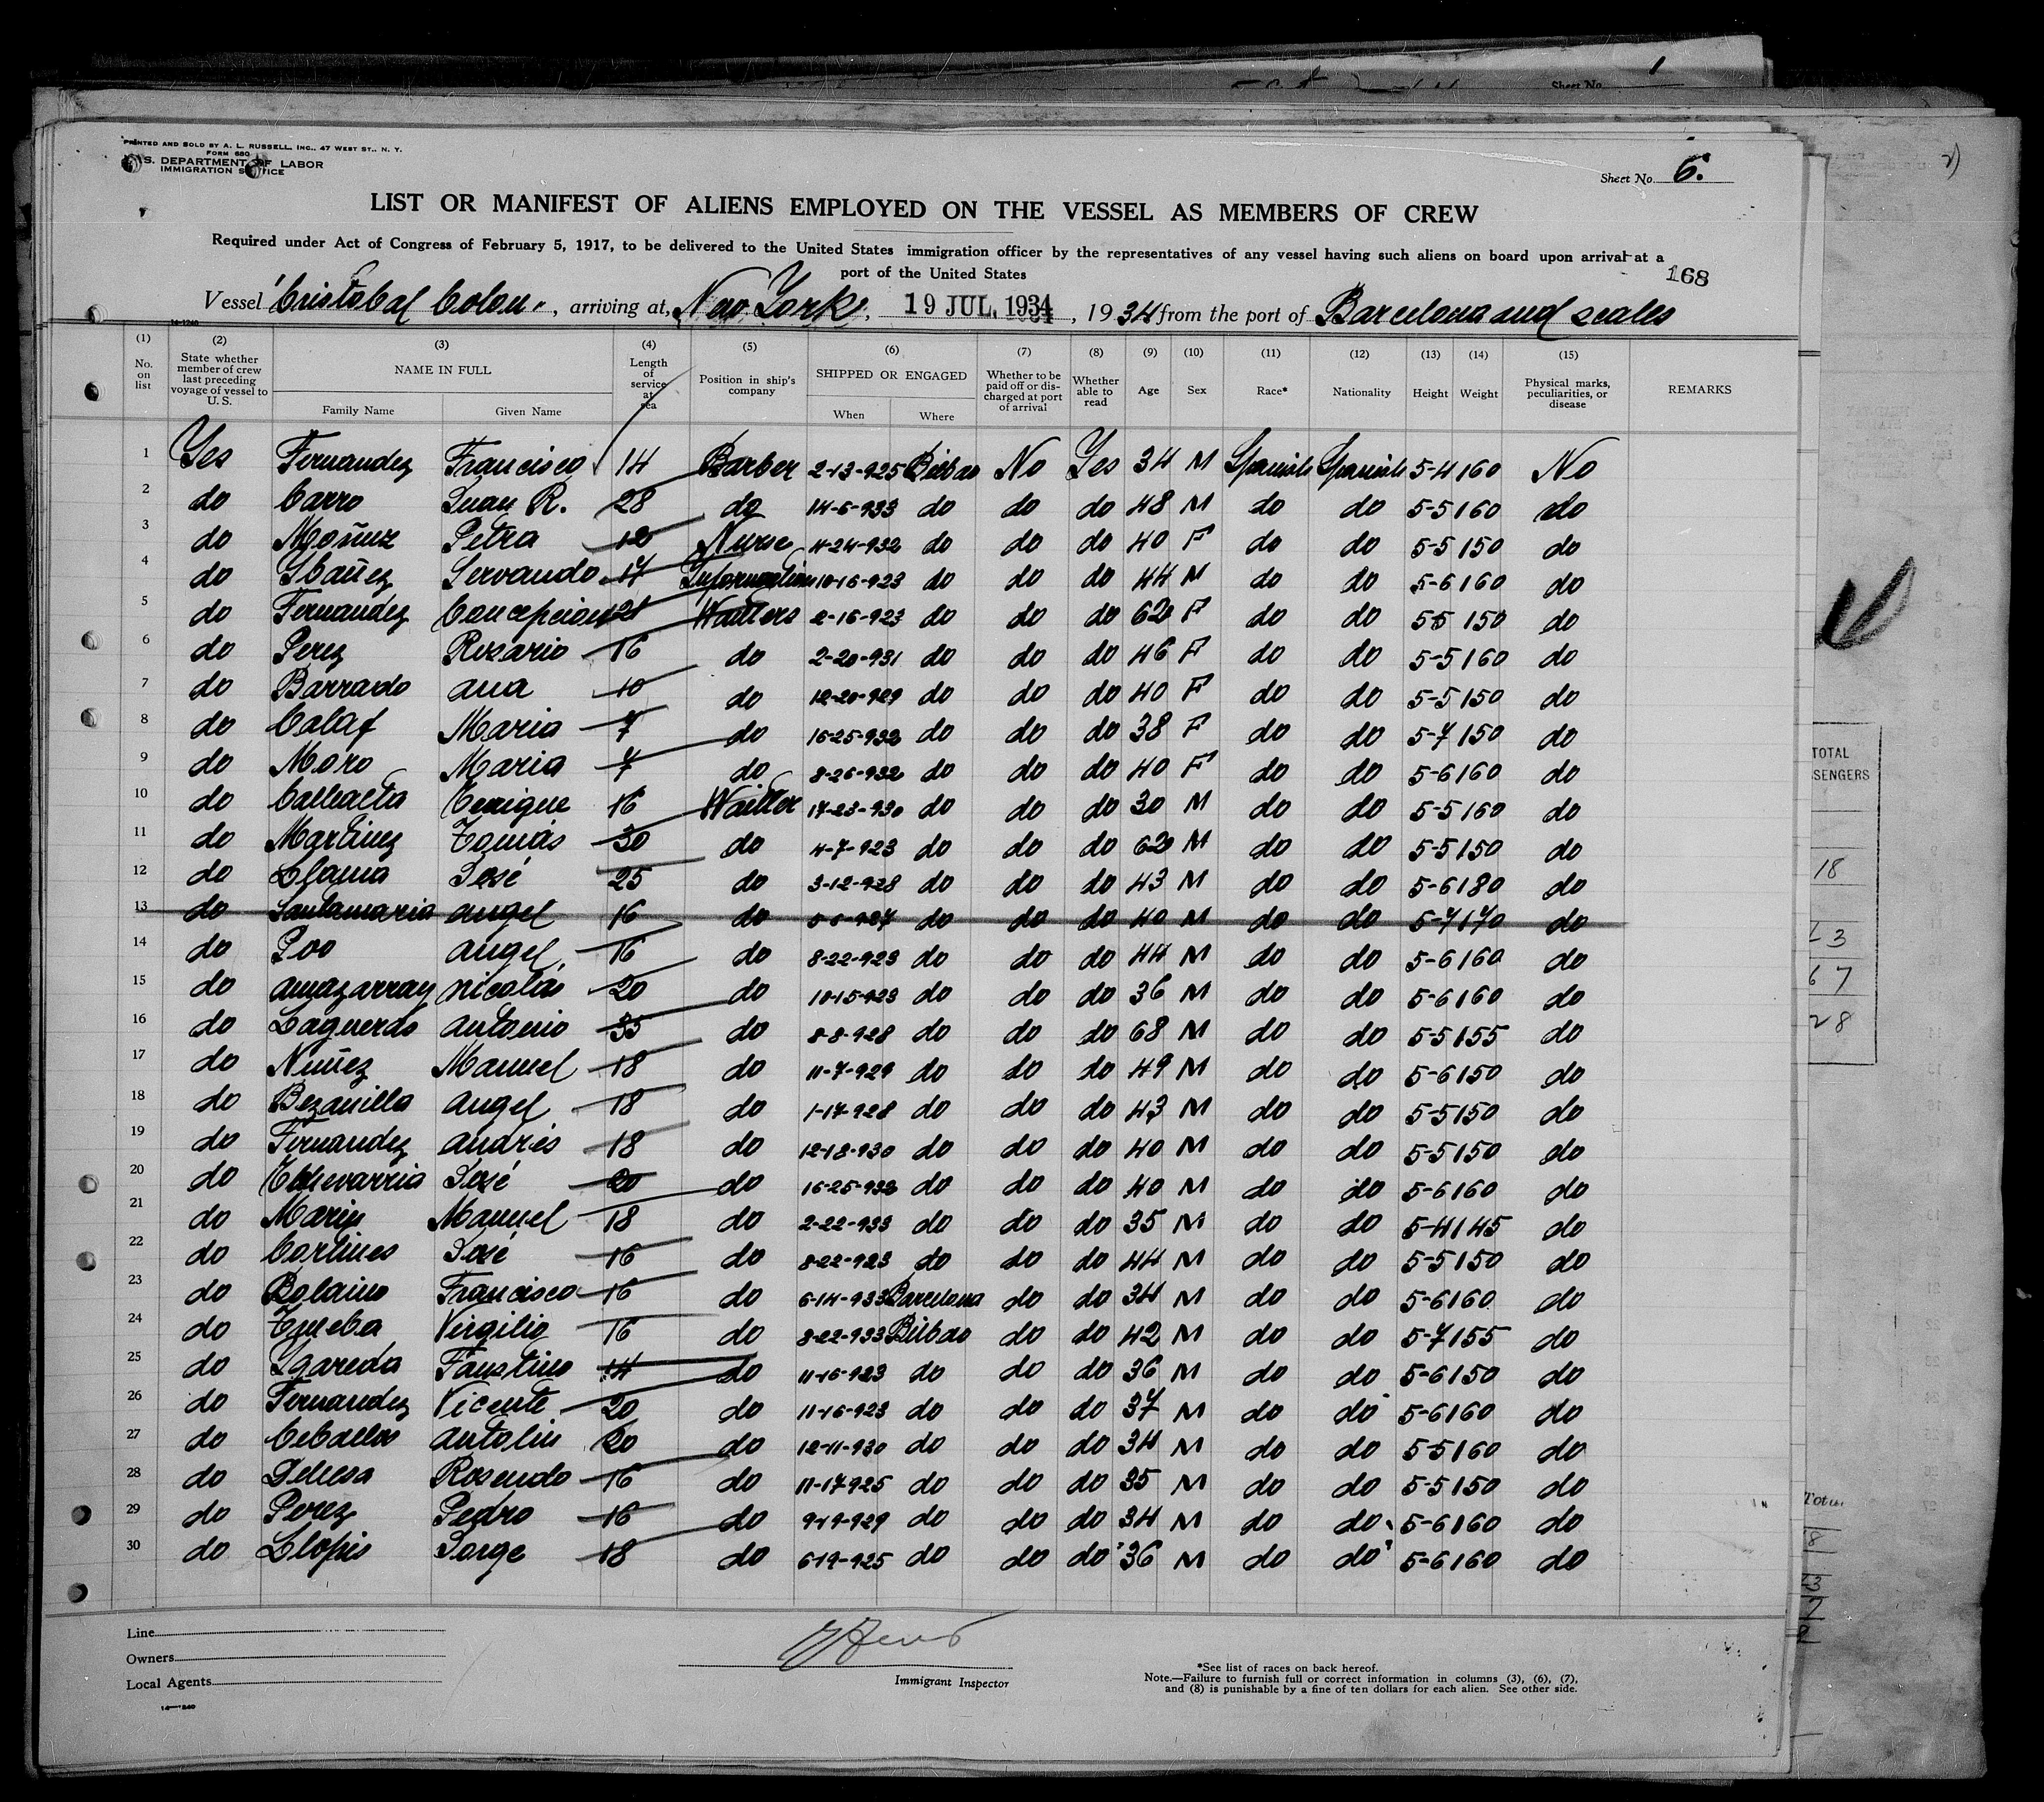 Sheet No. 1
PRINTED AND SOLD BY A. L. RUSSELL, INC., 47 WEST ST., N. Y.
FORM 680
U. S. DEPARTMENT OF LABOR
IMMIGRATION SERVICE
Sheet No. 6.
LIST OR MANIFEST OF ALIENS EMPLOYED ON THE VESSEL AS MEMBERS OF CREW
Required under Act of Congress of February 5, 1917, to be delivered to the United States immigration officer by the representatives of any vessel having such aliens on board upon arrival at a
port of the United States
168
Vessel "Cristobal Colon", arriving at, New York, 19 JUL 1934, 1934 from the port of Barcelona and scales
14-1240
(1) (2) (3) (4) (5) (6) (7) (8) (9) (10) (11) (12) (13) (14) (15)
No. on list State whether member of crew last preceding voyage of vessel to U. S. NAME IN FULL Length of service at sea Position in ship's company SHIPPED OR ENGAGED Whether to be paid off or discharged at port of arrival Whether able to read Age Sex Race* Nationality Height Weight Physical marks, peculiarities, or disease REMARKS
Family Name Given Name When Where
1 Yes Fernandez Francisco 14 Barber 2-13-925 Bilbao No Yes 34 M Spanish Spanish 5-4 160 No
2 do Carro Juan R. 28 do 14-6-933 do do do 48 M do do 5-5 160 do
3 do Moñuz Petra 12 Nurse 4-24-932 do do do 40 F do do 5-5 150 do
4 do Ybañez Servando 14 Information 10-16-923 do do do 44 M do do 5-6 160 do
5 do Fernandez Concepcion 21 Waiters 2-16-923 do do do 62 F do do 5-5 150 do
6 do Perez Rosario 16 do 2-20-931 do do do 46 F do do 5-5 160 do
7 do Barrado Ana 10 do 12-20-929 do do do 40 F do do 5-5 150 do
8 do Calaf Maria 7 do 16-25-932 do do do 38 F do do 5-7 150 do
9 do Moro Maria 7 do 8-26-932 do do do 40 F do do 5-6 160 do
10 do Enrique 16 Waitter 17-23-930 do do do 30 M do do 5-5 160 do
11 do Martinez Tomás 30 do 4-7-923 do do do 62 M do do 5-5 150 do
12 do Llama José 25 do 3-12-928 do do do 43 M do do 5-6 180 do
13 do Santamaria Angel 16 do 5-6-927 do do do 40 M do do 5-7 170 do
14 do Poo Angel 16 do 8-22-923 do do do 44 M do do 5-6 160 do
15 do Amazarray Nicolás 20 do 10-15-923 do do do 36 M do do 5-6 160 do
16 do Laguerdo Antonio 35 do 8-8-928 do do do 68 M do do 5-5 155 do
17 do Nuñez Manuel 18 do 11-7-929 do do do 49 M do do 5-6 150 do
18 do Bezanilla Angel 18 do 1-17-928 do do do 43 M do do 5-5 150 do
19 do Fernandez Andrés 18 do 12-18-930 do do do 40 M do do 5-5 150 do
20 do Echevarria José 20 do 16-25-932 do do do 40 M do do 5-6 160 do
21 do Marin Manuel 18 do 2-22-933 do do do 35 M do do 5-4 145 do
22 do Cortines José 16 do 8-22-923 do do do 44 M do do 5-5 150 do
23 do Bolaino Francisco 16 do 6-14-933 Barcelona do do 34 M do do 5-6 160 do
24 do Trueba Virgilio 16 do 8-22-933 Bilbao do do 42 M do do 5-7 155 do
25 do Ygareda Faustino 14 do 11-16-923 do do do 36 M do do 5-6 150 do
26 do Fernandez Vicente 20 do 11-16-923 do do do 37 M do do 5-6 160 do
27 do Ceballos Antolin 20 do 12-11-930 do do do 34 M do do 5-5 160 do
28 do Dehesa Rosendo 16 do 11-17-925 do do do 35 M do do 5-5 150 do
29 do Perez Pedro 16 do 9-19-929 do do do 34 M do do 5-6 160 do
30 do Llopis Jorge 18 do 6-19-925 do do do 36 M do do 5-6 160 do
Line
Owners
Local Agents
14-1240
Immigrant Inspector
*See list of races on back hereof.
Note.—Failure to furnish full or correct information in columns (3), (6), (7),
and (8) is punishable by a fine of ten dollars for each alien. See other side.
TOTAL
SENGERS
18
23
67
28
Total